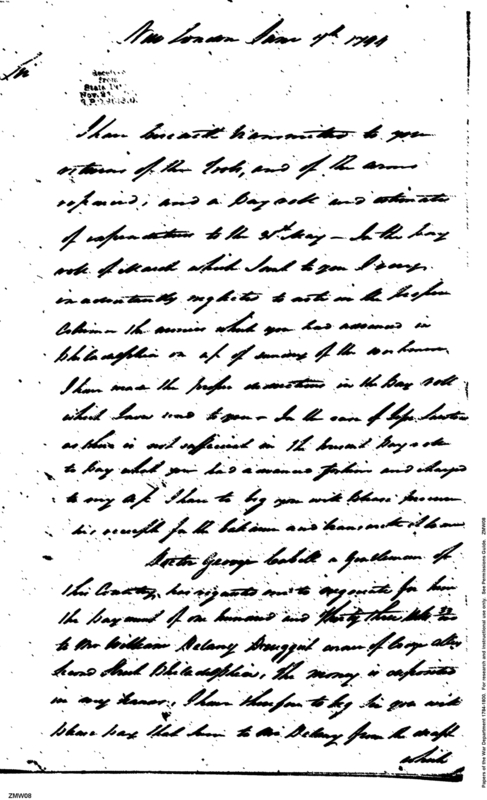 New London June 7th 1794
Sir
Received
from
State De
Nov. 2
I have herewith transmitted to you
returns of the Tools, and of the arms
repaired; and a Pay roll and estimates
of expenditures to the 31st May - In the pay
roll of March which I sent to you I very
inadvertently neglected to note in the proper
Column the monies which you had advanced in
Philadelphia on a/c of sundry of the workmen
I have made the proper deductions in the Pay roll
which I now send to you - In the case of
as there is not sufficient in the present Pay role
to pay what you had advanced him and charged
to my a/c I have to beg you will please procure
his receipt for the balance and transmit it to me
Doctor George Cabell a Gentleman of
this Country, has requested me to negociate for him
the payment of one hundred and thirty three
to Mr William Delany Druggist corner of
Second Street Philadelphia, the money is deposited
in my hands; I have therefore to beg Sir you will
please pay that sum to Mr Delany from the draft
which
ZMW08
Papers of the War Department 1784-1800. For research and instructional use only. See Permissions Guide. ZMW08